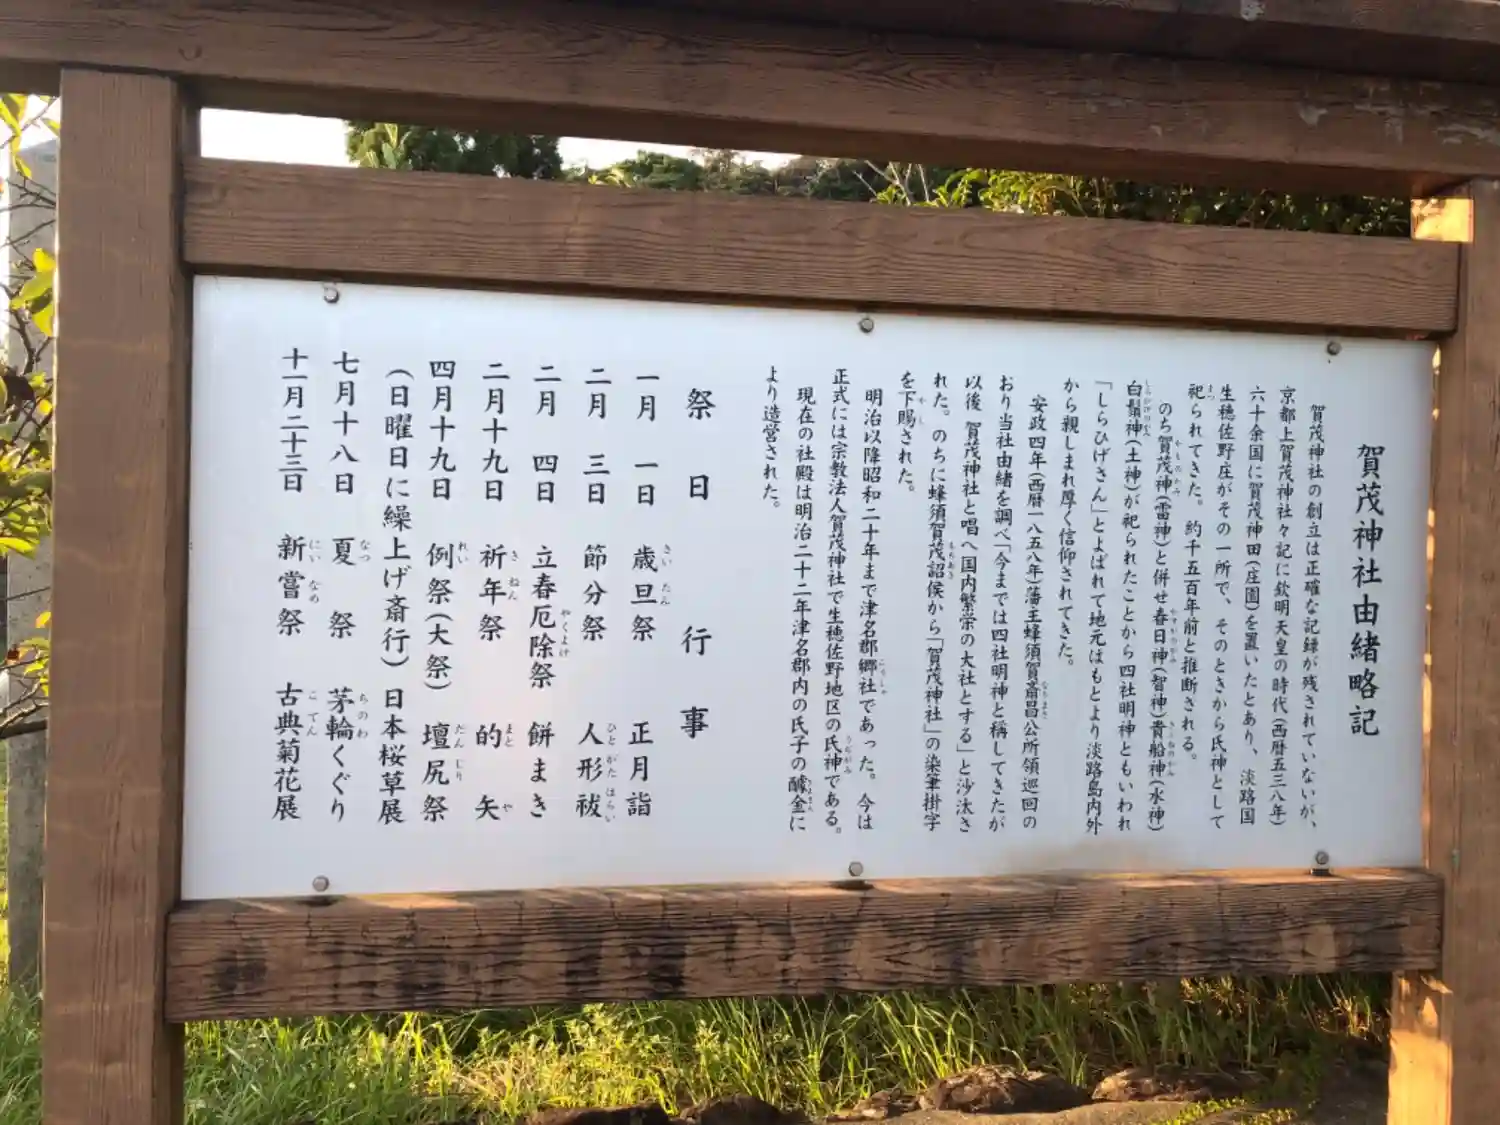 賀茂神社由緒略記
賀茂神社の創立は正確な記録が残されていないが、
京都上賀茂神社々記に欽明天皇の時代(西暦五三八年)
六十余国に賀茂神田(庄園)を置いたとあり、淡路国
生穂佐野庄がその一所で、そのときから氏神として
祀られてきた。約千五百年前と推断される。
のち賀茂神(雷神)と併せ春日神(智神)貴船神(水神)
白鬚神(土神)が祀られたことから四社明神ともいわれ
「しらひげさん」とよばれて地元はもとより淡路島内外
から親しまれ厚く信仰されてきた。
安政四年(西暦一八五八年)藩主蜂須賀斎昌公所領巡回の
おり当社由緒を調べ「今までは四社明神と稱してきたが
以後 賀茂神社と唱へ国内繁栄の大社とする」と沙汰さ
れた。のちに蜂須賀茂韶侯から「賀茂神社」の染筆掛字
を下賜された。
明治以降昭和二十年まで津名郡郷社であった。今は
正式には宗教法人賀茂神社で生穂佐野地区の氏神である。
現在の社殿は明治二十二年津名郡内の氏子の醵金に
より造営された。
祭日行事
一月 一日 歳旦祭 正月詣
二月 三日 節分祭 人形祓
二月 四日 立春厄除祭 餅まき
二月十九日 祈年祭 的矢
四月十九日 例祭(大祭) 壇尻祭
(日曜日に繰上げ斎行) 日本桜草展
七月十八日 夏祭 茅輪くぐり
十一月二十三日 新嘗祭 古典菊花展